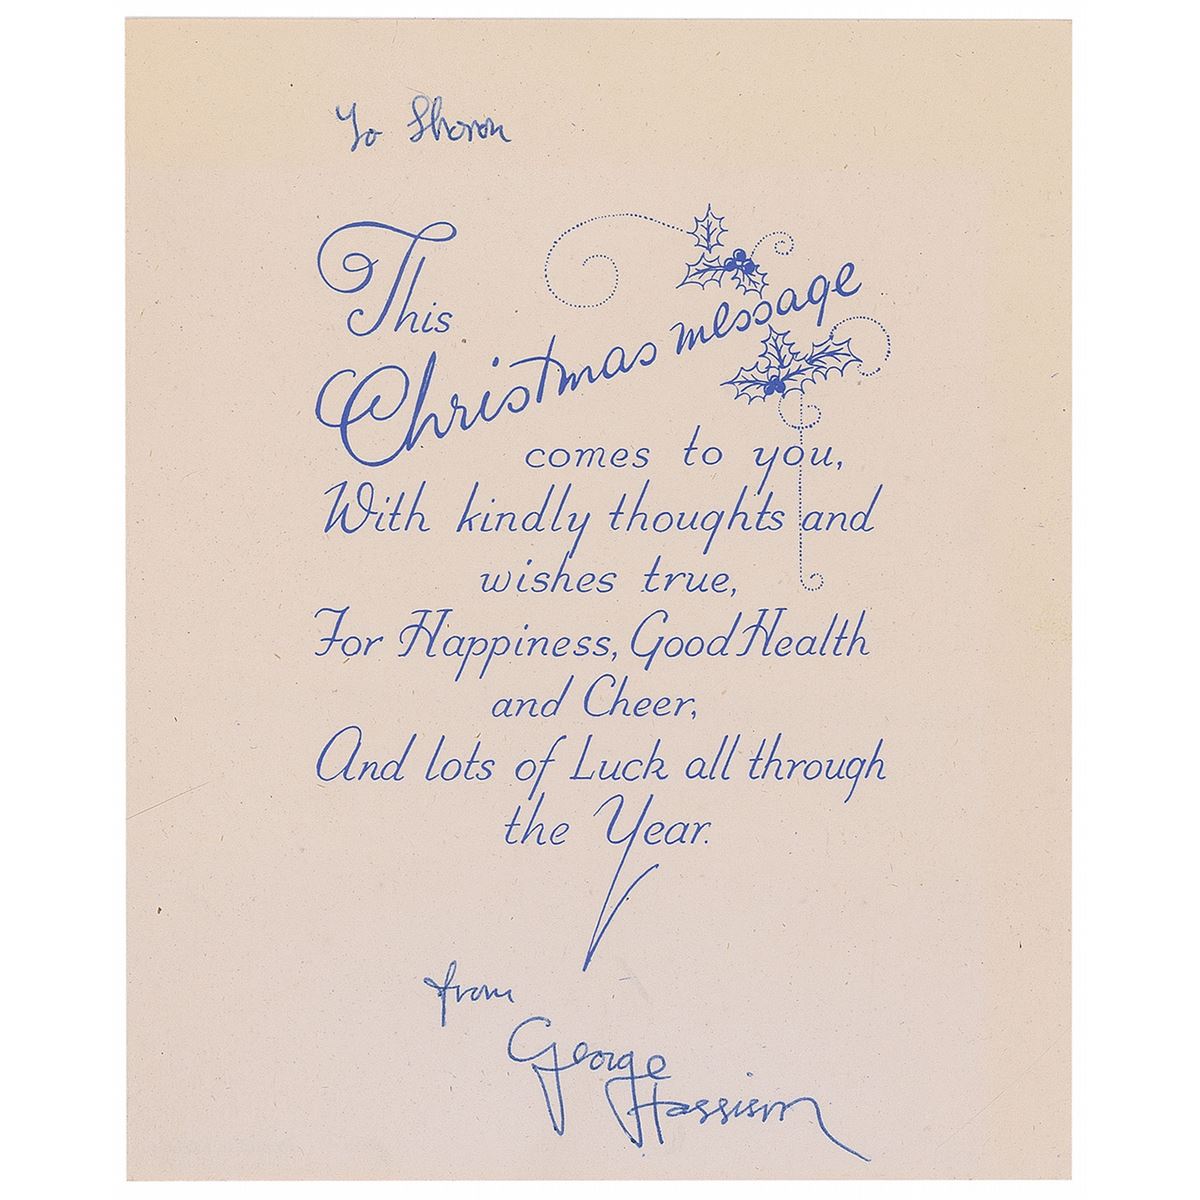 To Sharon
This
Christmas message
comes to you,
With kindly thoughts and
wishes true,
For Happiness, Good Health
and Cheer,
And lots of Luck all through
the Year.
from
George
Harrison